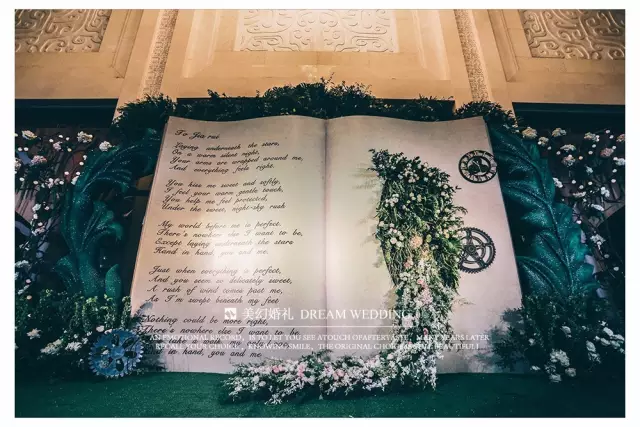 To Jia rui
Laying underneath the stars,
On a warm silent night,
Your arms are wrapped around me,
And everything feels right.
You kiss me sweet and softly,
I feel your warm gentle touch,
You help me feel protected,
Under the sweet, night-sky rush
My world before me is perfect.
There's nowhere else I want to be,
Except laying underneath the stars
Hand in hand, you and me.
Just when everything is perfect,
And you seem so delicately sweet,
A rush of wind comes past me,
As I'm swept beneath my feet
美幻婚礼 DREAM WEDDING
Nothing could be more right,
There's nowhere else I want to be
AN EMOTIONAL RECORD, IS TO LET YOU SEE A TOUCH OF AFTERTASTE, MANY YEARS LATER
RECALL YOUR CHOICE, KNOWING SMILE, THE ORIGINAL CHOICE IS BEAUTIFUL
in hand, you and me